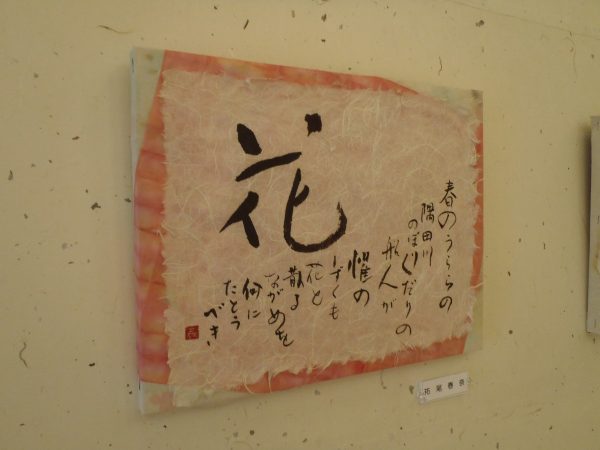 花
春のうららの
隅田川
のぼりくだりの
船人が
櫂の
しずくも
花と
散る
ながめを
何に
たとう
べき
拓尾春奈